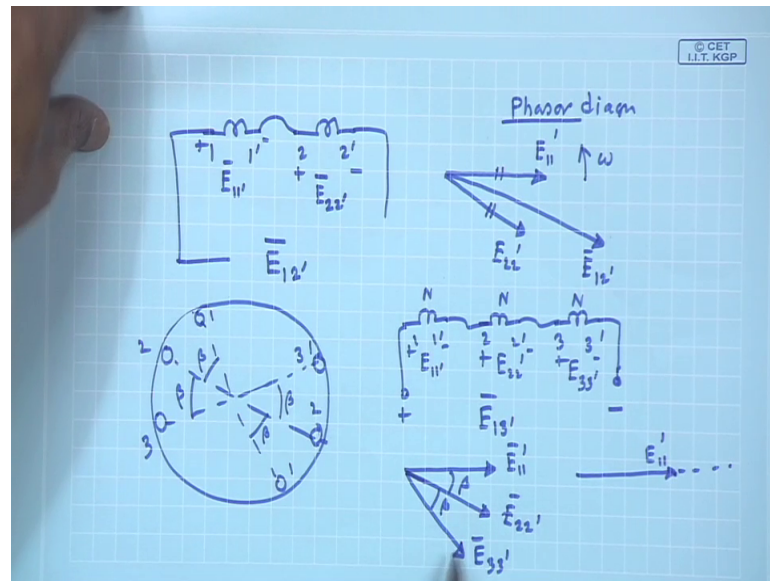 © CET
I.I.T. KGP
Phasor diagm
+ 1 1' - 2 2'
E̅11' + E̅22' -
E̅12'
E11' ω
E22' E̅12'
N N N
+ 1 1' - 2 2' - 3 3'
E̅11' + E̅22' + E̅33' -
+ E̅13' -
2 β 3'
β β
3 β 2
E̅11' β
β E̅22'
E̅33'
E11'